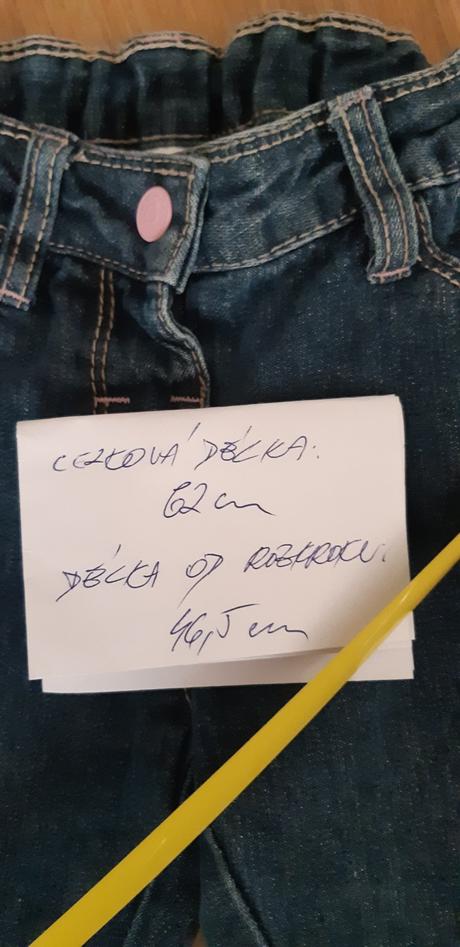 CELKOVÁ DÉLKA:
62 cm
DÉLKA OD ROZKROKU:
46,5 cm